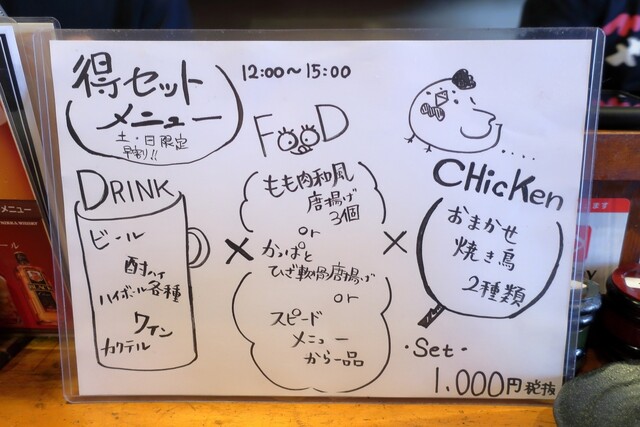 得セット
メニュー
土・日限定
早割!!
12:00〜15:00
FOOD
DRINK
ビール
酎ハイ
ハイボール各種
ワイン
カクテル
×
もも肉和風
唐揚げ
3個
or
かんぱと
ひざ軟骨唐揚げ
or
スピード
メニュー
から一品
×
CHicKen
おまかせ
焼き鳥
2種類
・Set・
1,000円税抜
メニュー
NIKKA WHISKY
ール
ます